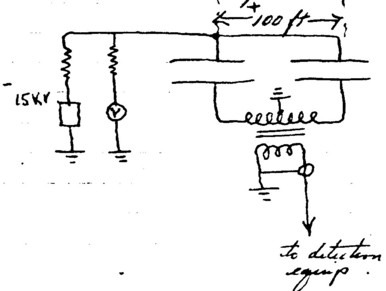 +
100 ft
15KV
V
to detection
equip.